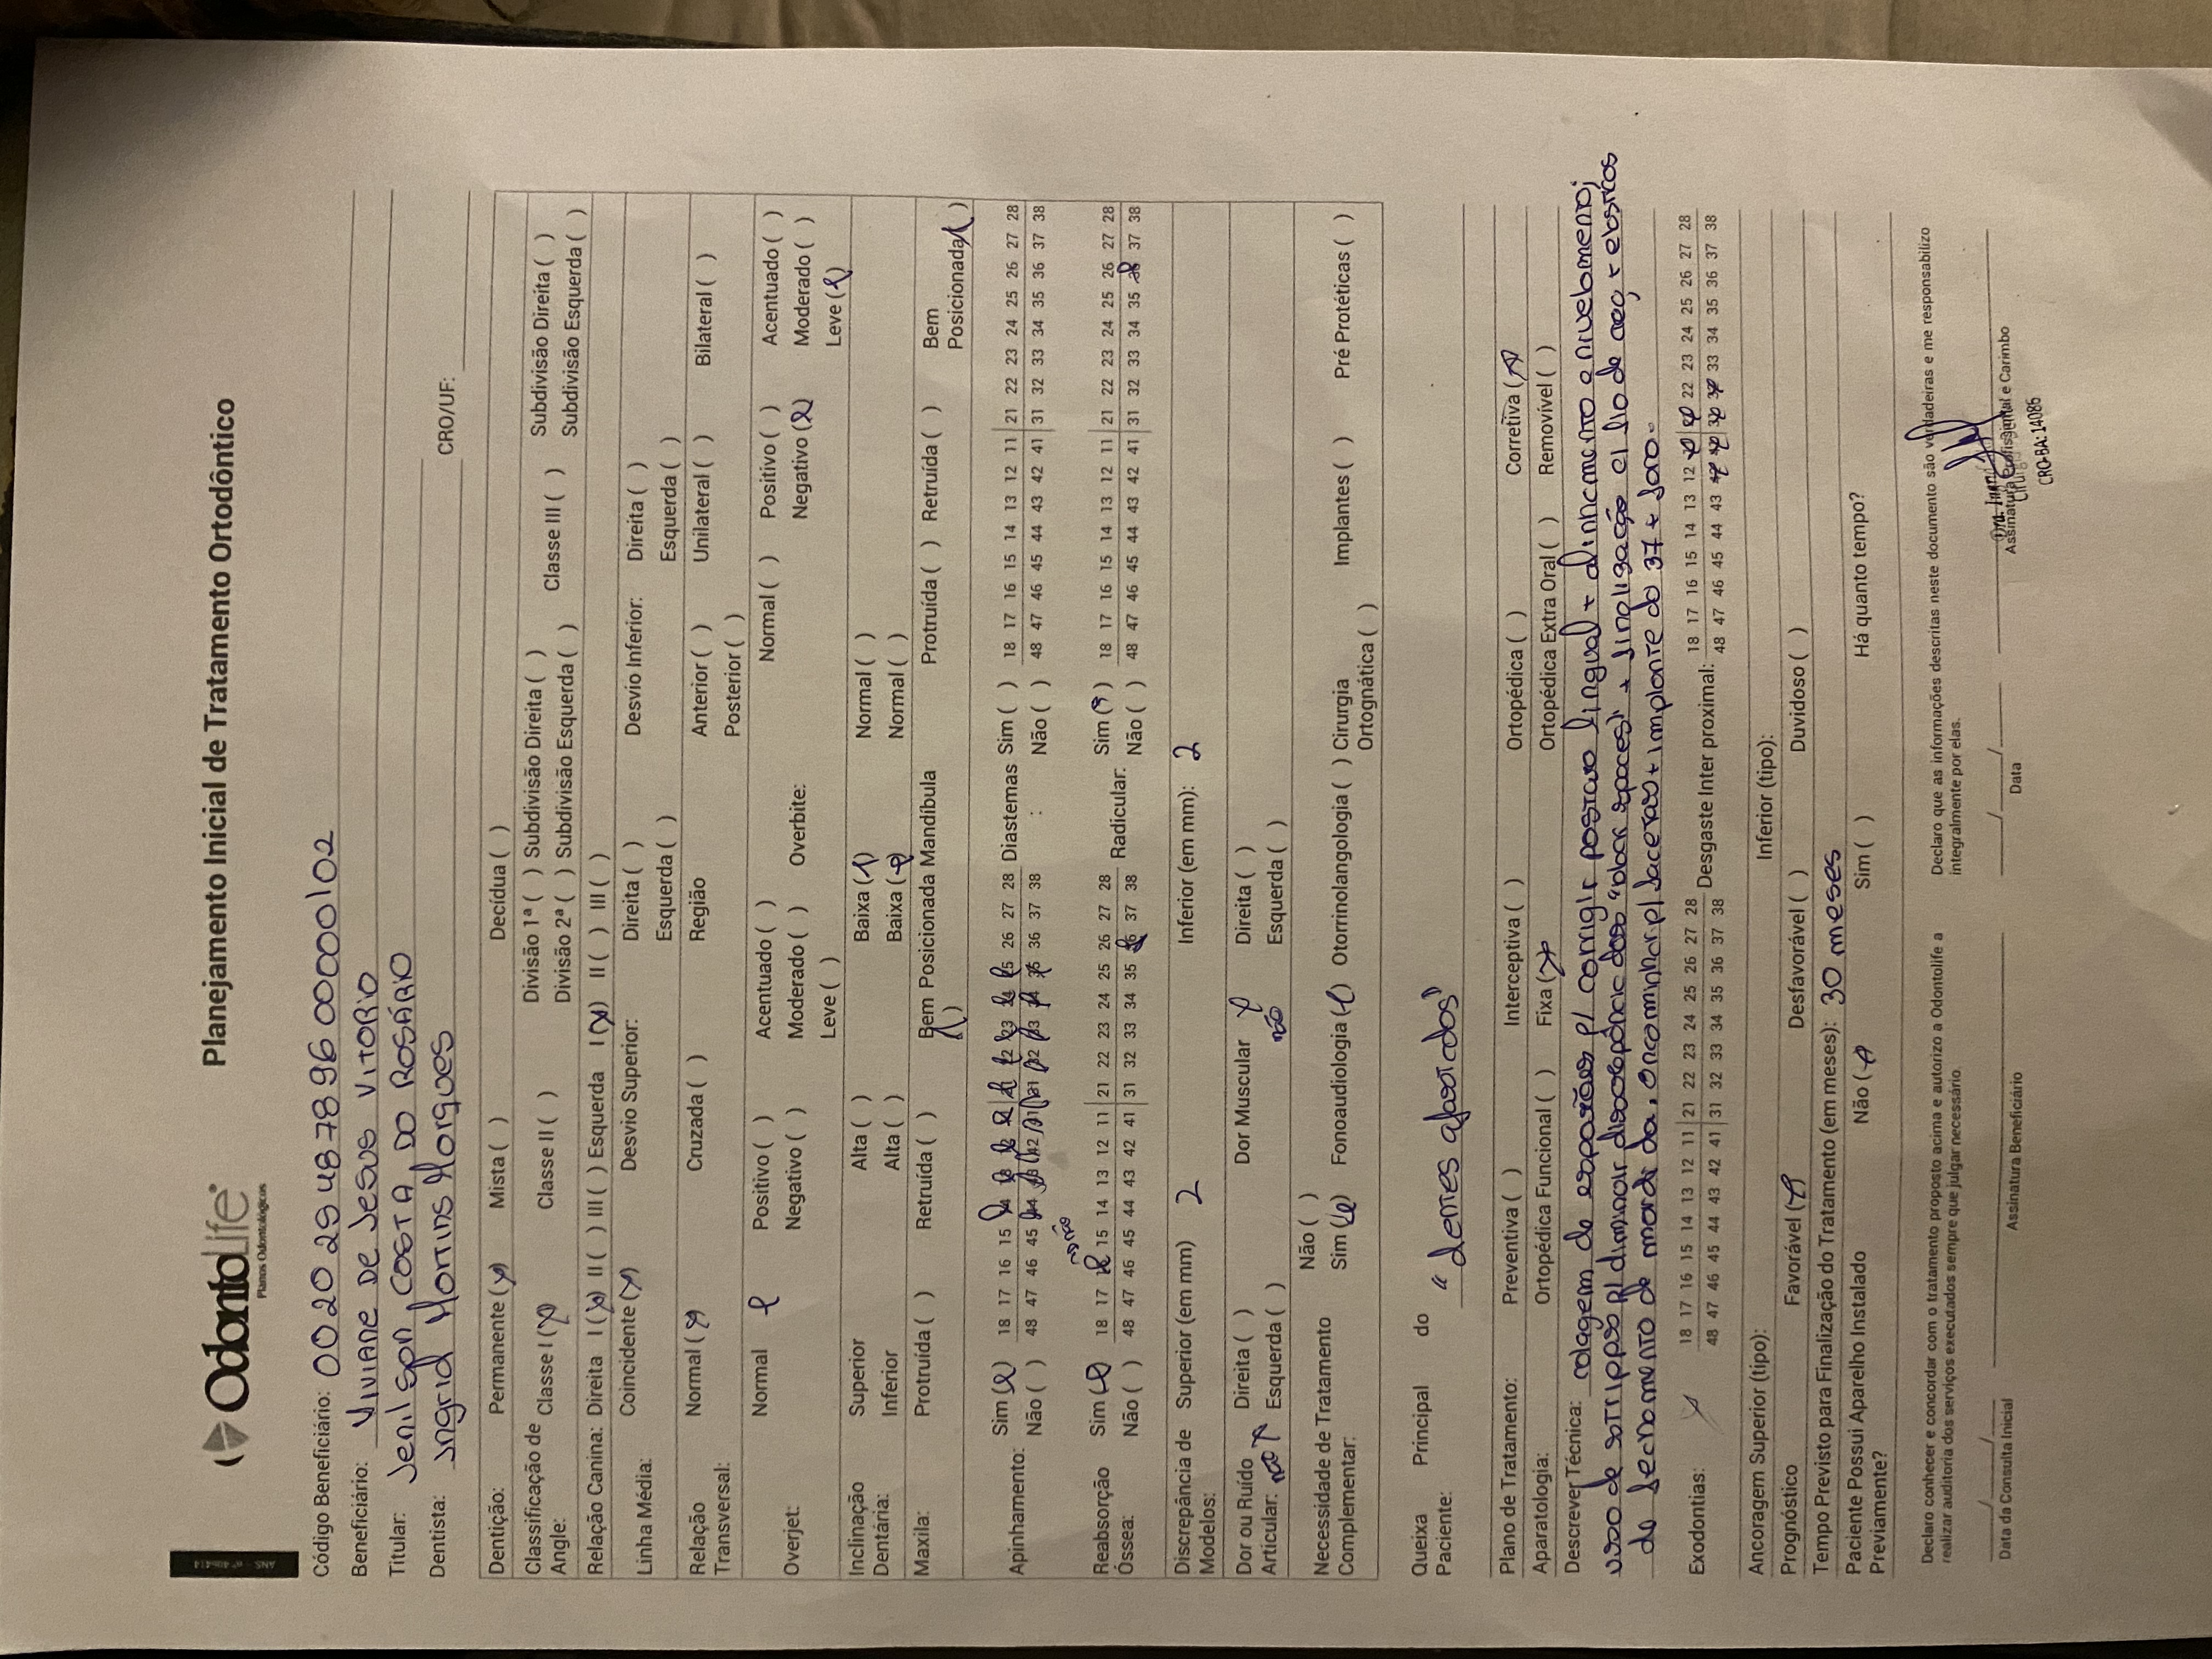 OdontoLife
Planos Odontológicos
Planejamento Inicial de Tratamento Ortodôntico
Código Beneficiário: 0020254878960000102
Beneficiário: VIVIANE DE JESUS VITORIO
Titular: Jenilson COSTA DO ROSÁRIO
Dentista: Ingrid Martins Marques CRO/UF:
Dentição: Permanente (x) Mista ( ) Decídua ( )
Classificação de Angle: Classe I (x) Classe II ( ) Divisão 1ª ( ) Subdivisão Direita ( ) Classe III ( ) Subdivisão Direita ( )
Divisão 2ª ( ) Subdivisão Esquerda ( ) Subdivisão Esquerda ( )
Relação Canina: Direita I (x) II ( ) III ( ) Esquerda I (x) II ( ) III ( )
Linha Média: Coincidente (x) Desvio Superior: Direita ( ) Desvio Inferior: Direita ( )
Esquerda ( ) Esquerda ( )
Relação Transversal: Normal (x) Cruzada ( ) Região Anterior ( ) Unilateral ( ) Bilateral ( )
Posterior ( )
Overjet: Normal x Positivo ( ) Acentuado ( ) Overbite: Normal ( ) Positivo ( ) Acentuado ( )
Negativo ( ) Moderado ( ) Negativo (x) Moderado ( )
Leve ( ) Leve (x)
Inclinação Dentária: Superior Alta ( ) Baixa (x) Normal ( )
Inferior Alta ( ) Baixa (x) Normal ( )
Maxila: Protruída ( ) Retruída ( ) Bem Posicionada (x) Mandíbula Protruída ( ) Retruída ( ) Bem Posicionada (x)
Apinhamento: Sim (x) 18 17 16 15 14 13 12 11 21 22 23 24 25 26 27 28 Diastemas : Sim ( ) 18 17 16 15 14 13 12 11 21 22 23 24 25 26 27 28
Não ( ) 48 47 46 45 44 43 42 41 31 32 33 34 35 36 37 38 Não ( ) 48 47 46 45 44 43 42 41 31 32 33 34 35 36 37 38
Reabsorção Óssea: Sim (x) 18 17 16 15 14 13 12 11 21 22 23 24 25 26 27 28 Radicular: Sim ( ) 18 17 16 15 14 13 12 11 21 22 23 24 25 26 27 28
Não ( ) 48 47 46 45 44 43 42 41 31 32 33 34 35 36 37 38 Não ( ) 48 47 46 45 44 43 42 41 31 32 33 34 35 36 37 38
Discrepância de Modelos: Superior (em mm) 2 Inferior (em mm): 2
Dor ou Ruído Articular: não x Direita ( ) Esquerda ( ) Dor Muscular x não Direita ( ) Esquerda ( )
Necessidade de Tratamento Complementar: Não ( )
Sim (x) Fonoaudiologia (x) Otorrinolangologia ( ) Cirurgia Ortognática ( ) Implantes ( ) Pré Protéticas ( )
Queixa Principal do Paciente: "dentes afastados"
Plano de Tratamento: Preventiva ( ) Interceptiva ( ) Ortopédica ( ) Corretiva (x)
Aparatologia: Ortopédica Funcional ( ) Fixa (x) Ortopédica Extra Oral ( ) Removível ( )
Descrever Técnica: colagem de esporões p/ corrigir postura lingual + alinhamento e nivelamento;
uso de stripps p/ diminuir discrepância dos "black spaces" + finalização c/ fio de aço + elásticos
de fechamento de mordida. encaminhar p/ + implante do 37 +
Exodontias: 18 17 16 15 14 13 12 11 21 22 23 24 25 26 27 28 Desgaste Inter proximal: 18 17 16 15 14 13 12 11 21 22 23 24 25 26 27 28
48 47 46 45 44 43 42 41 31 32 33 34 35 36 37 38 48 47 46 45 44 43 42 41 31 32 33 34 35 36 37 38
Ancoragem Superior (tipo): Inferior (tipo):
Prognóstico Favorável (x) Desfavorável ( ) Duvidoso ( )
Tempo Previsto para Finalização do Tratamento (em meses): 30 meses
Paciente Possui Aparelho Instalado Previamente? Não (x) Sim ( ) Há quanto tempo?
Declaro conhecer e concordar com o tratamento proposto acima e autorizo a Odontolife a realizar auditoria dos serviços executados sempre que julgar necessário.
Declaro que as informações descritas neste documento são verdadeiras e me responsabilizo integralmente por elas.
Data da Consulta Inicial
Assinatura Beneficiário
Data
Assinatura Profissional e Carimbo
CRO-BA: 14086